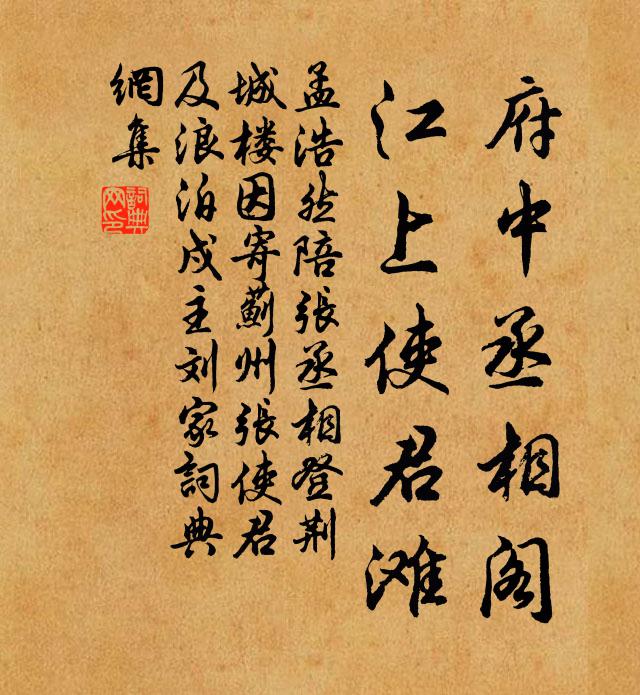 府中丞相阁
江上使君滩
孟浩然陪张丞相登荆
城楼因寄蓟州张使君
及浪泊戍主刘家詞典
網集
詞典
网印